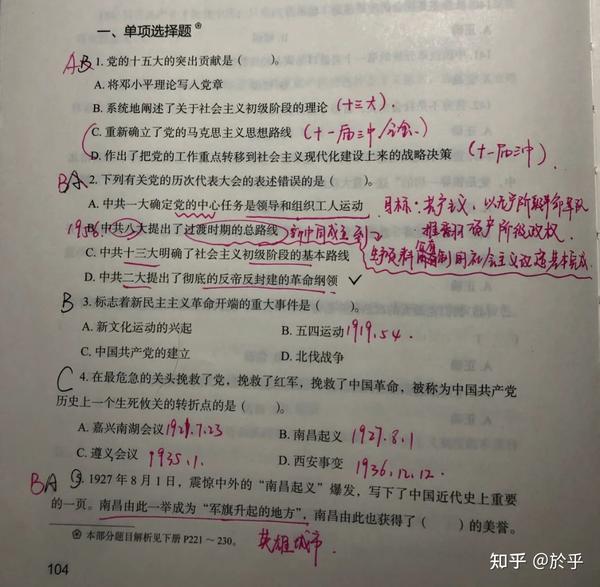 一、单项选择题
AB 1. 党的十五大的突出贡献是（　　）。
A. 将邓小平理论写入党章
B. 系统地阐述了关于社会主义初级阶段的理论 (十三大).
C. 重新确立了党的马克思主义思想路线 (十一届三中全会)
D. 作出了把党的工作重点转移到社会主义现代化建设上来的战略决策 (十一届三中)
BA 2. 下列有关党的历次代表大会的表述错误的是（　　）。
A. 中共一大确定党的中心任务是领导和组织工人运动 目标：共产主义，以无产阶级革命军队
1956 B. 中共八大提出了过渡时期的总路线 新中国成立到 推翻资产阶级政权.
C. 中共十三大明确了社会主义初级阶段的基本路线 生产资料 制 社会主义改造基本完成.
D. 中共二大提出了彻底的反帝反封建的革命纲领 ✓
B 3. 标志着新民主主义革命开端的重大事件是（　　）。
A. 新文化运动的兴起 B. 五四运动 1919.5.4.
C. 中国共产党的建立 D. 北伐战争
C 4. 在最危急的关头挽救了党，挽救了红军，挽救了中国革命，被称为中国共产党
历史上一个生死攸关的转折点的是（　　）。
A. 嘉兴南湖会议 1921.7.23 B. 南昌起义 1927.8.1
C. 遵义会议 1935.1. D. 西安事变 1936.12.12.
BA 5. 1927 年 8 月 1 日，震惊中外的“南昌起义”爆发，写下了中国近代史上重要
的一页。南昌由此一举成为“军旗升起的地方”，南昌由此也获得了（　　）的美誉。
英雄城市.
本部分题目解析见下册 P221～230。
104
知乎 @於乎